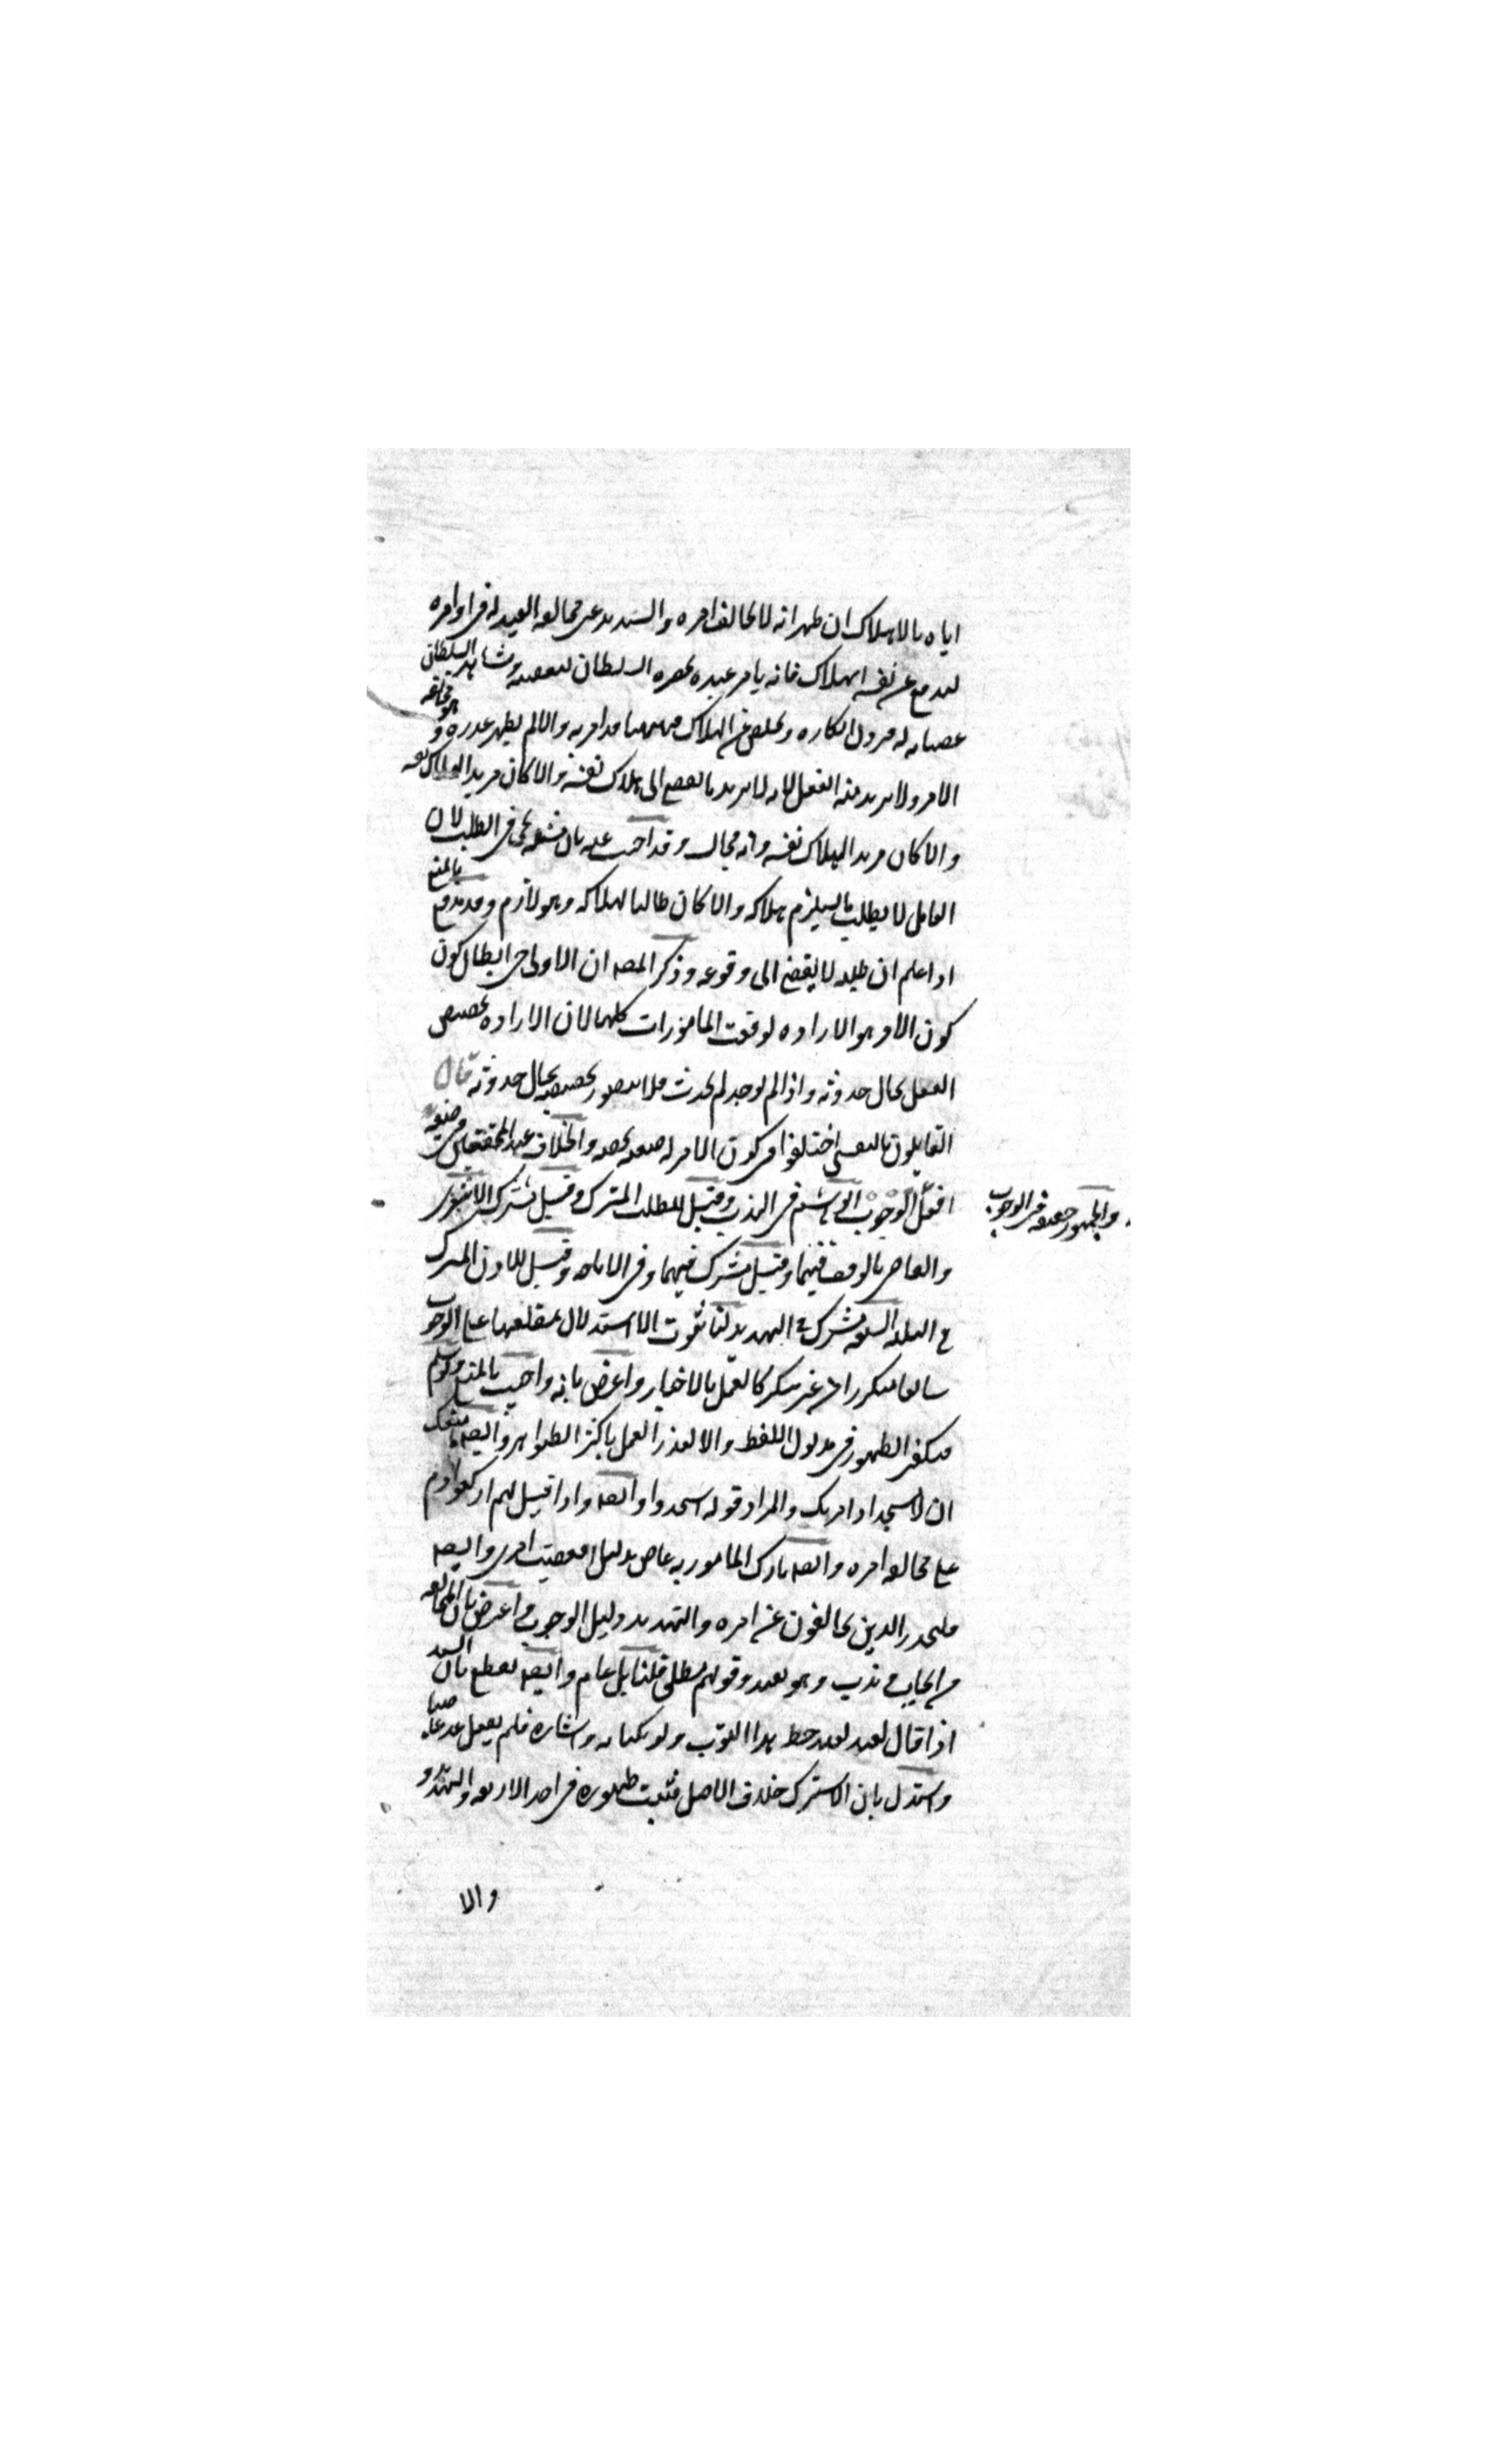 اياه بالاهلاك ان ظهر انه لا يخالف امره والسيد يدعى مخالفة العبد له فى اوامره
ليدفع عن نفسه الهلاك فانه يامر عبده بحضرة السلطان ليعصيه ويشاهد السلطان
عصيانه له فيزول انكاره ويخلص عن الهلاك فههنا قد امر به والا لم يظهر عذره وهو مخالفة
الامر ولا يريد منه الفعل لانه لا يريد ما يفضى الى هلاك نفسه والا كان مريدا لهلاك نفسه
والا كان مريدا لهلاك نفسه وانه محال وقد احتج عليه بان مثله يجى فى الطلب لان
العاقل لا يطلب ما يستلزم هلاكه والا كان طالبا لهلاكه وهو لازم وقد يدفع بالمنع
اذا علم ان طلبه لا يفضى الى وقوعه وذكر المصـ ان الاولى فى ابطال كون
كون الامر هو الارادة لوقعت المامورات كلها لان الارادة تخصيص
الفعل بحال حدوثه واذا لم يوجد لم يحدث فلا يتصور تخصيصه بحال حدوثه قال
القايلون بالنفسى اختلفوا فى كون الامر له صيغة تخصه والخلاف عند المحققين فى صيغة
افعل الوجوب ابو هاشم فى الندب وقيل للطلب المشترك وقيل مشترك الاشعرى
والجمهور حقيقة فى الوجوب
والقاضى بالوقف فيهما وقيل مشترك فيهما وفى الاباحة وقيل للاذن المشترك
فى الثلثة الشيعة مشترك فى التهديد لنا ثبوت الاستدلال بمطلقها على الوجوب
شايعا متكررا من غير نكير كالعمل بالاخبار واعترض بانه واجيب بالمنع ولو سلم
فيكفى الظهور فى مدلول اللفظ والا لتعذر العمل باكثر الظواهر وايضـ ما منعك
ان لا تسجد اذ امرتك والمراد قوله اسجدوا وايضـ واذا قيل لهم اركعوا ذم
على مخالفة امره وايضـ تارك المامور به عاص بدليل افعصيت امرى وايضـ
فليحذر الذين يخالفون عن امره والتهديد دليل الوجوب واعترض بان المخالفة
من ايجاب وندب وهو بعيد وقولهم مطلق قلنا بل عام وايضـ نقطع بان السيد
اذا قال لعبده خط هذا الثوب ولو بكتابة واشارة فلم يفعل عد عاصيا
واستدل بان الاشتراك خلاف الاصل فثبت ظهوره فى احد الاربعة والتهديد و
والا